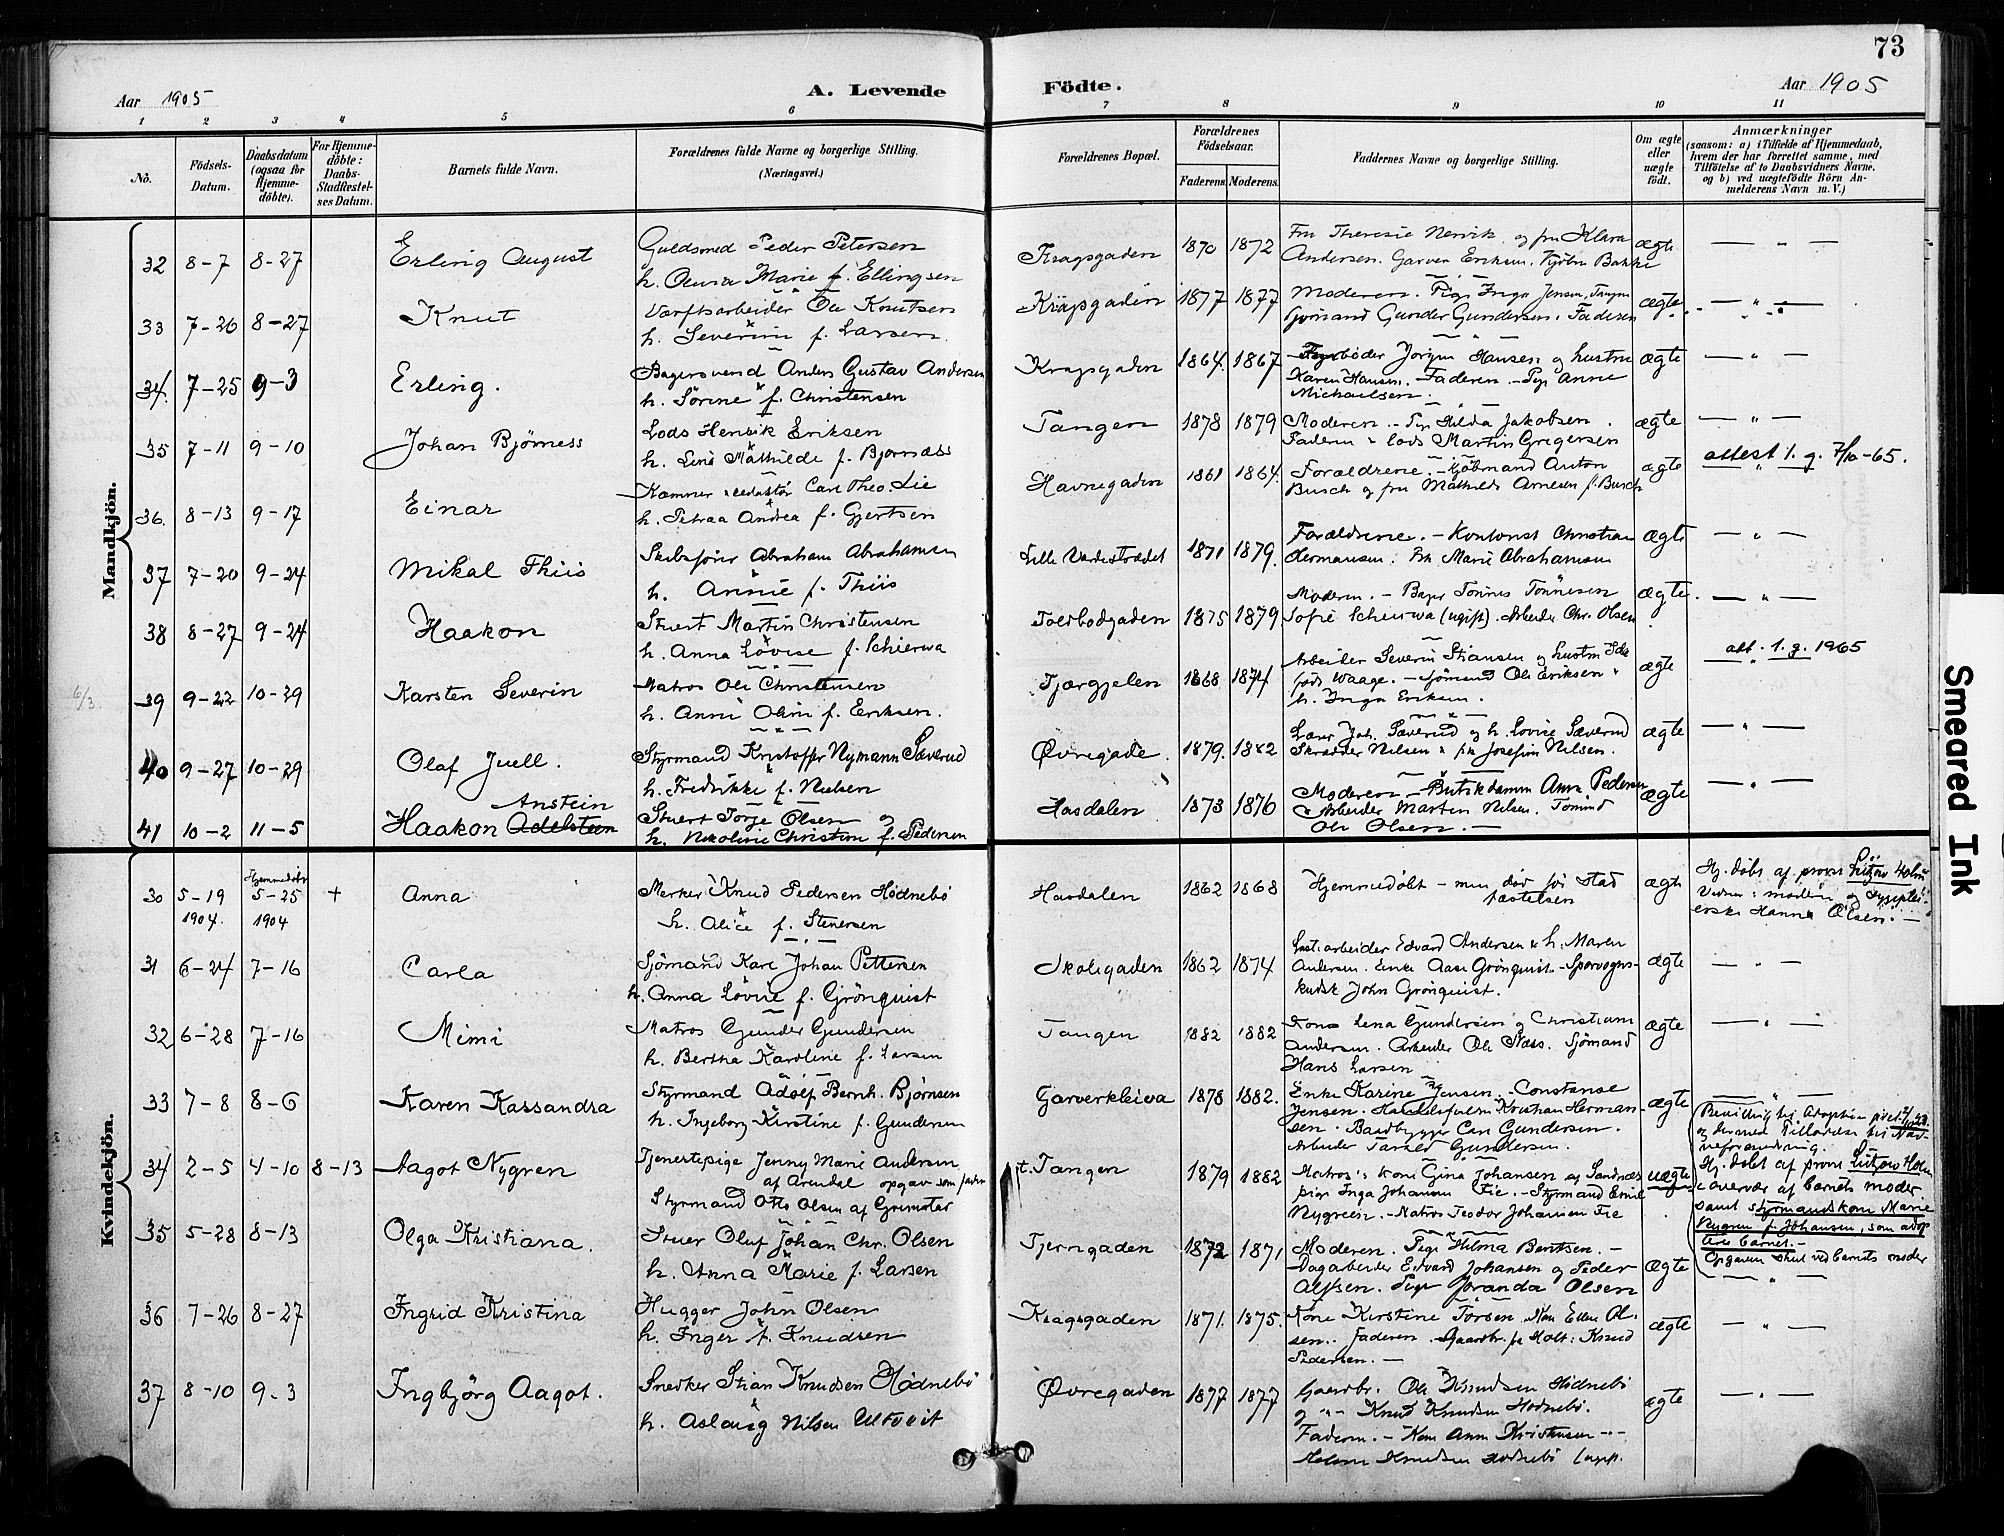 73
Aar 1905
A. Levende
Födte.
Aar 1905
1 2 3 4 5 6 7 8 9 10 11
No.
Födsels-
Datum.
Daabsdatum
(ogsaa for
Hjemme-
döbte).
For Hjemme-
döbte:
Daabs-
Stadfæstel-
ses Datum.
Barnets fulde Navn.
Forældrenes fulde Navne og borgerlige Stilling.
(Næringsvei.)
Forældrenes Bopæl.
Forældrenes
Födselsaar.
Faderens. Moderens.
Faddernes Navne og borgerlige Stilling.
Om ægte
eller
uægte
født.
Anmærkninger
(saasom: a) i Tilfælde af Hjemmedaab,
hvem der har forrettet samme, med
Tilföielse af to Daabsvidners Navne,
og b) ved uægtefödte Börn An-
melderens Navn m. V.)
Mandkjön.
32 8-7 8-27 Erling August
Guldsmed Peder Petersen
h. Olivia Marie f. Ellingsen
Kragsgaden 1870 1872
Fru Theresie Nervik og fru Klara
Andersen. Garver Eriksen. Kjøbm Bakke
ægte
33 7-26 8-27 Knut
Værftsarbeider Ole Knutsen
h. Severine f. Larsen
Kragsgaden 1877 1877
Moderen. Pige Inga Jensen, Tangen
Gunder Gundersen. Faderen
ægte
34. 7-25 9-3 Erling.
Bagersvend Anders Gustav Andersen
h. Sörine f. Christensen
Kragsgaden 1864. 1867
Jørgen Hansen og hustru
Karen Hansen. Faderen. - Pige Anne
Michaelsen.
ægte
35 7-11 9-10 Johan Bjørness
Lods Henrik Eriksen
h. Lina Mathilde f. Bjørnæss
Tangen 1878 1879
Moderen. - Pige Hilda Jakobsen.
Faderen & Lods Martin Gregersen
ægte
36. 8-13 9-17 Einar
Kæmner & redaktør Carl Theo. Lie
h. Petraa Andrea f. Gjertsen
Havnegaden 1861 1864.
Forældrene. - Kjøbmand Anton
Busch og fru Mathilde Arnesen f. Busch
ægte
attest 1. g. 7/10-65.
37 7-20 9-24 Mikal Thiis
Skibsfører Abraham Abrahamsen
h. Annie f. Thiis
Lille Vardestrædet 1871 1879.
Forældrene. - Kontorist Christian
Hermansen. Frk Marie Abrahamsen
ægte
38 8-27 9-24 Haakon
Stuert Martin Christensen
h. Anna Lovise f. Schierwa
Toldbodgaden 1875 1879
Moderen. - Bager Tönnes Tönnesen
Sofie Schierwa (ugift). Arbeider Chr. Olsen
ægte.
39 9-22 10-29 Karsten Severin
Matros Ole Christensen
h. Anne Oline f. Eriksen.
Tjærgjelen 1868 1874
Arbeider Severin Stiansen og hustru Ida
født Waage. - Sjømand Ole Eriksen &
h. Inga Eriksen.
ægte
att. 1. g. 1965
6/3.
40 9-27 10-29 Olaf Juell.
Styrmand Kristoffer Nymann Sæverud
h. Fredrikke f. Nielsen
Øvregade. 1879. 1882
Lærer Joh. Sæverud og h. Lovise Sæverud
Skræder Nilsen & frk Josefine Nilsen.
ægte
41 10-2 11-5 Haakon Adelsteen
Anstein
Stuert Torje Olsen og
h. Nikoline Christine f. Pedersen
Hasdalen 1873 1876
Moderen - Butikdamen Anna Pedersen
& Arbeider Martin Nilsen. Tømmd
Ole Olsen. -
ægte
Kvindekjön.
30 5-19 1904. Hjemmedøbt 5-25 1904 + Anna
Merker Knud Pedersen Hödnebö
h. Alice f. Stenersen
Hasdalen 1862 1868
Hjemmedøbt - men død før Stad
fæstelsen
ægte
Hj. døbt af provst Lützow Holm
Vidner: moderen og
Hanna Olsen. -
31 6-24 7-16 Carla
Sjömand Karl Johan Pettersen
h. Anna Lovise f. Grönquist
Skolegaden 1862 1874
Lastearbeider Edvard Andersen & h. Maren
Andersen. Enke Aase Grönquist - Sporvogns-
kudsk John Grönquist.
ægte
32 6-28 7-16 Mimi
Matros Gunder Gundersen
h. Bertha Karoline f. Larsen
Tangen 1882 1882
Kone Lena Gundersen og Christiane
Andersen. Arbeider Ole Næss. Sjömand
Hans Larsen
ægte
33 7-8 8-6 Karen Kassandra
Styrmand Adolf Bernh. Bjørnsen
h. Ingeborg Kirstine f. Gundersen
Garverkleiva 1878 1882.
Enke Karine Jensen. - Constanse
Jensen. Handelsfuldm. Kristian Herman-
sen. Baadbygger Carl Gundersen.
Arbeider Tarald Gundersen.
ægte
34 2-5 4-10 8-13 Aagot Nygren
Tjenestepige Jenny Marie Andersen
af Arendal opgav som fader
Styrmand Otto Olsen af Grimstad
t. Tangen 1879 1882
Matros's kone Gina Johansen af Sandnæs
pige Inga Johansen Fie. - Styrmand Emil
Nygreen. - Matros Teodor Johansen Fie
uægte
Bevilling til Adoption
og dermed Tilladelse til Nav-
neforandring.
Hj. døbt af provst Lützow Holm
i overvær af barnets moder
samt styrmandskone Marie
Nygren f. Johansen, som adop
tere barnet. -
Opgaven skeet ved barnets moder
35 5-28 8-13 Olga Kristiana.
Stuer Oluf Johan Chr. Olsen
h. Anna Marie f. Larsen
Tjerngaden 1872 1871
Moderen. Pige Hilma Bentsen. -
Dagarbeider Edvard Johansen og Peder
Alfsen. Pige Joranda Olsen
ægte
36 7-26 8-27 Ingrid Kristina
Hugger John Olsen
h. Inger f. Knudsen
Kragsgaden 1871. 1875.
Kone Kirstine Torsen. Kone Ellen Ol-
sen. Faderen. Gaardbr. fr Holt: Knud
Pedersen. -
ægte
37 8-10 9-3 Ingbjörg Aagot.
Snedker Stian Knudsen Hödnebö
h. Aslaug Nilsen Ultveit
Øvregaden 1877 1877
Gaardbr. Ole Knudsen Hödnebö
og "- Knud Knudsen Hödnebö.
Faderen. - Kone Anna Kristensen -
Knudsen Hödnebö (ugift.
ægte
Smeared Ink